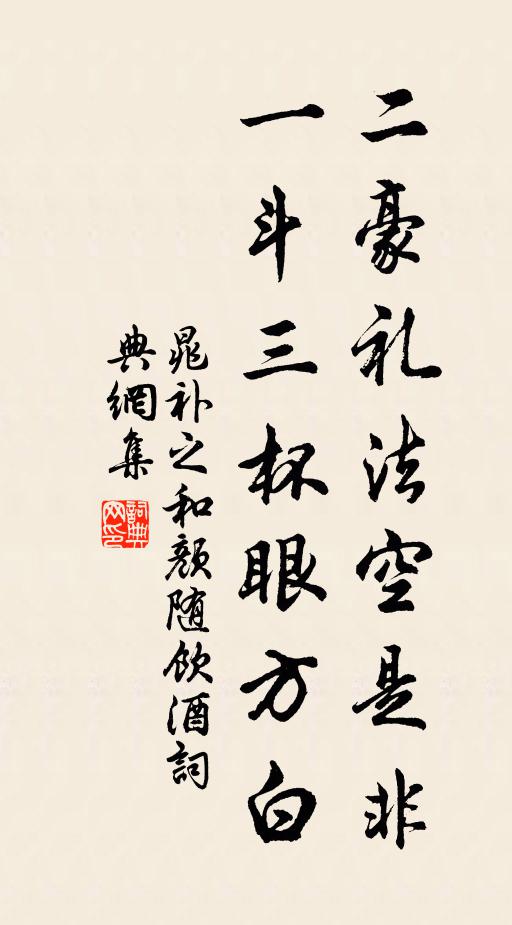 二豪礼法空是非
一斗三杯眼方白
晁补之和颜随饮酒詞
典網集
詞典网印